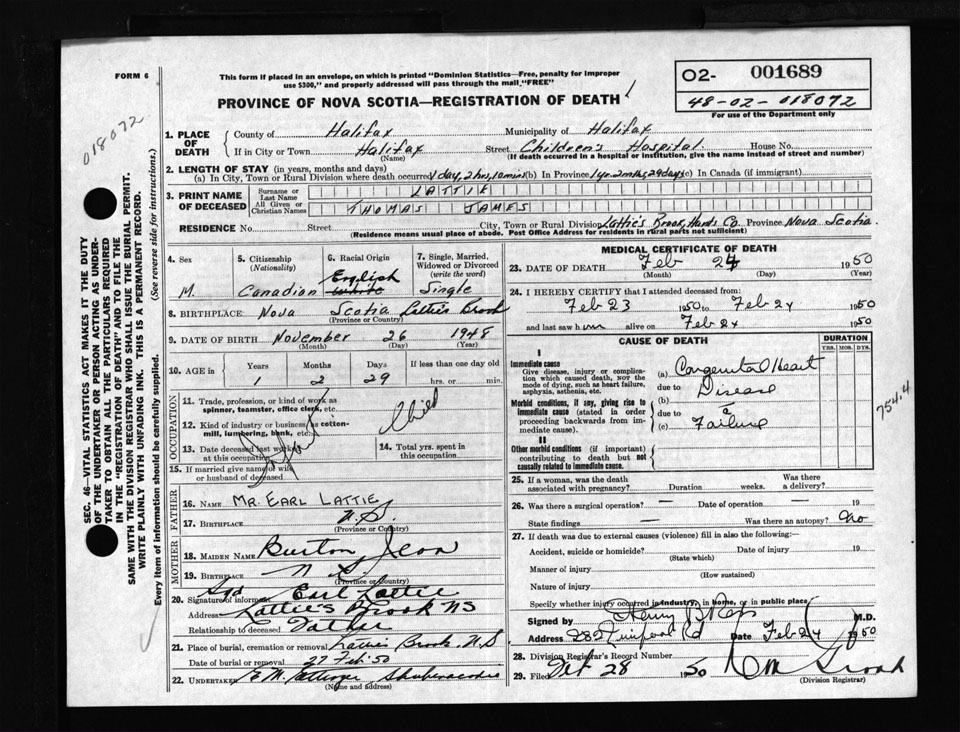 FORM 6
This form if placed in an envelope, on which is printed "Dominion Statistics—Free, penalty for improper
use $300," and properly addressed will pass through the mail "FREE"
PROVINCE OF NOVA SCOTIA—REGISTRATION OF DEATH
O2- 001689
48-02-018072
For use of the Department only
018072
1. PLACE OF DEATH
County of Halifax Municipality of Halifax
If in City or Town Halifax Street Children's Hospital House No.
(Name) (If death occurred in a hospital or institution, give the name instead of street and number)
2. LENGTH OF STAY (in years, months and days)
(a) In City, Town or Rural Division where death occurred 1 day, 2 hrs, 10 mins (b) In Province 1 yr. 2 mths 29 days (c) In Canada (if immigrant)
3. PRINT NAME OF DECEASED
Surname or Last Name LATTIE
All Given or Christian Names THOMAS JAMES
RESIDENCE No. Street City, Town or Rural Division Lattie's Brook, Hants Co Province Nova Scotia
(Residence means usual place of abode. Post Office Address for residents in rural parts not sufficient)
4. Sex
M.
5. Citizenship (Nationality)
Canadian
6. Racial Origin
English
White
7. Single, Married, Widowed or Divorced (write the word)
Single
8. BIRTHPLACE Nova Scotia Latties Brook
(Province or Country)
9. DATE OF BIRTH November 26 1948
(Month) (Day) (Year)
10. AGE in Years Months Days If less than one day old
1 2 29 hrs. or min.
OCCUPATION
11. Trade, profession, or kind of work as
spinner, teamster, office clerk, etc.
Child
12. Kind of industry or business as cotton-
mill, lumbering, bank, etc.
13. Date deceased last worked
at this occupation
14. Total yrs. spent in
this occupation
15. If married give name of wife
or husband of deceased
FATHER
16. NAME MR. EARL LATTIE
17. BIRTHPLACE N.S.
(Province or Country)
MOTHER
18. MAIDEN NAME Burton Jean
19. BIRTHPLACE N.S.
(Province or Country)
20. Signature of informant Sgd Earl Lattie
Address Lattie's Brook NS
Relationship to deceased Father
21. Place of burial, cremation or removal Latties Brook, N.S
Date of burial or removal 27 Feb. 50
22. UNDERTAKER Shubenacadie
(Name and address)
MEDICAL CERTIFICATE OF DEATH
23. DATE OF DEATH Feb 24 1950
(Month) (Day) (Year)
24. I HEREBY CERTIFY that I attended deceased from:
Feb 23 1950 to Feb 24 1950
and last saw him alive on Feb 24 1950
CAUSE OF DEATH
DURATION
YRS. MOS. DYS.
I
Immediate cause
Give disease, injury or complica-
tion which caused death, not the
mode of dying, such as heart failure,
asphyxia, asthenia, etc.
(a) Congenital Heart
due to Disease
Morbid conditions, if any, giving rise to
immediate cause (stated in order
proceeding backwards from im-
mediate cause).
(b)
due to
(c) Failure
754.4
II
Other morbid conditions (if important)
contributing to death but not
causally related to immediate cause.
25. If a woman, was the death
associated with pregnancy? Duration weeks. Was there
a delivery?
26. Was there a surgical operation? — Date of operation — 19
State findings — Was there an autopsy? no
27. If death was due to external causes (violence) fill in also the following:—
Accident, suicide or homicide? Date of injury 19
(State which)
Manner of injury
(How sustained)
Nature of injury
Specify whether injury occurred in industry, in home, or in public place
Signed by Henry B Ross M.D.
Address 282 Quinpool Rd Date Feb 24 1950
28. Division Registrar's Record Number
29. Filed Feb 28 1950
(Division Registrar)
SEC. 46—VITAL STATISTICS ACT MAKES IT THE DUTY
OF THE UNDERTAKER OR PERSON ACTING AS UNDER-
TAKER TO OBTAIN ALL THE PARTICULARS REQUIRED
IN THE "REGISTRATION OF DEATH" AND TO FILE THE
SAME WITH THE DIVISION REGISTRAR WHO SHALL ISSUE THE BURIAL PERMIT.
WRITE PLAINLY WITH UNFADING INK. THIS IS A PERMANENT RECORD.
Every item of information should be carefully supplied. (See reverse side for instructions.)